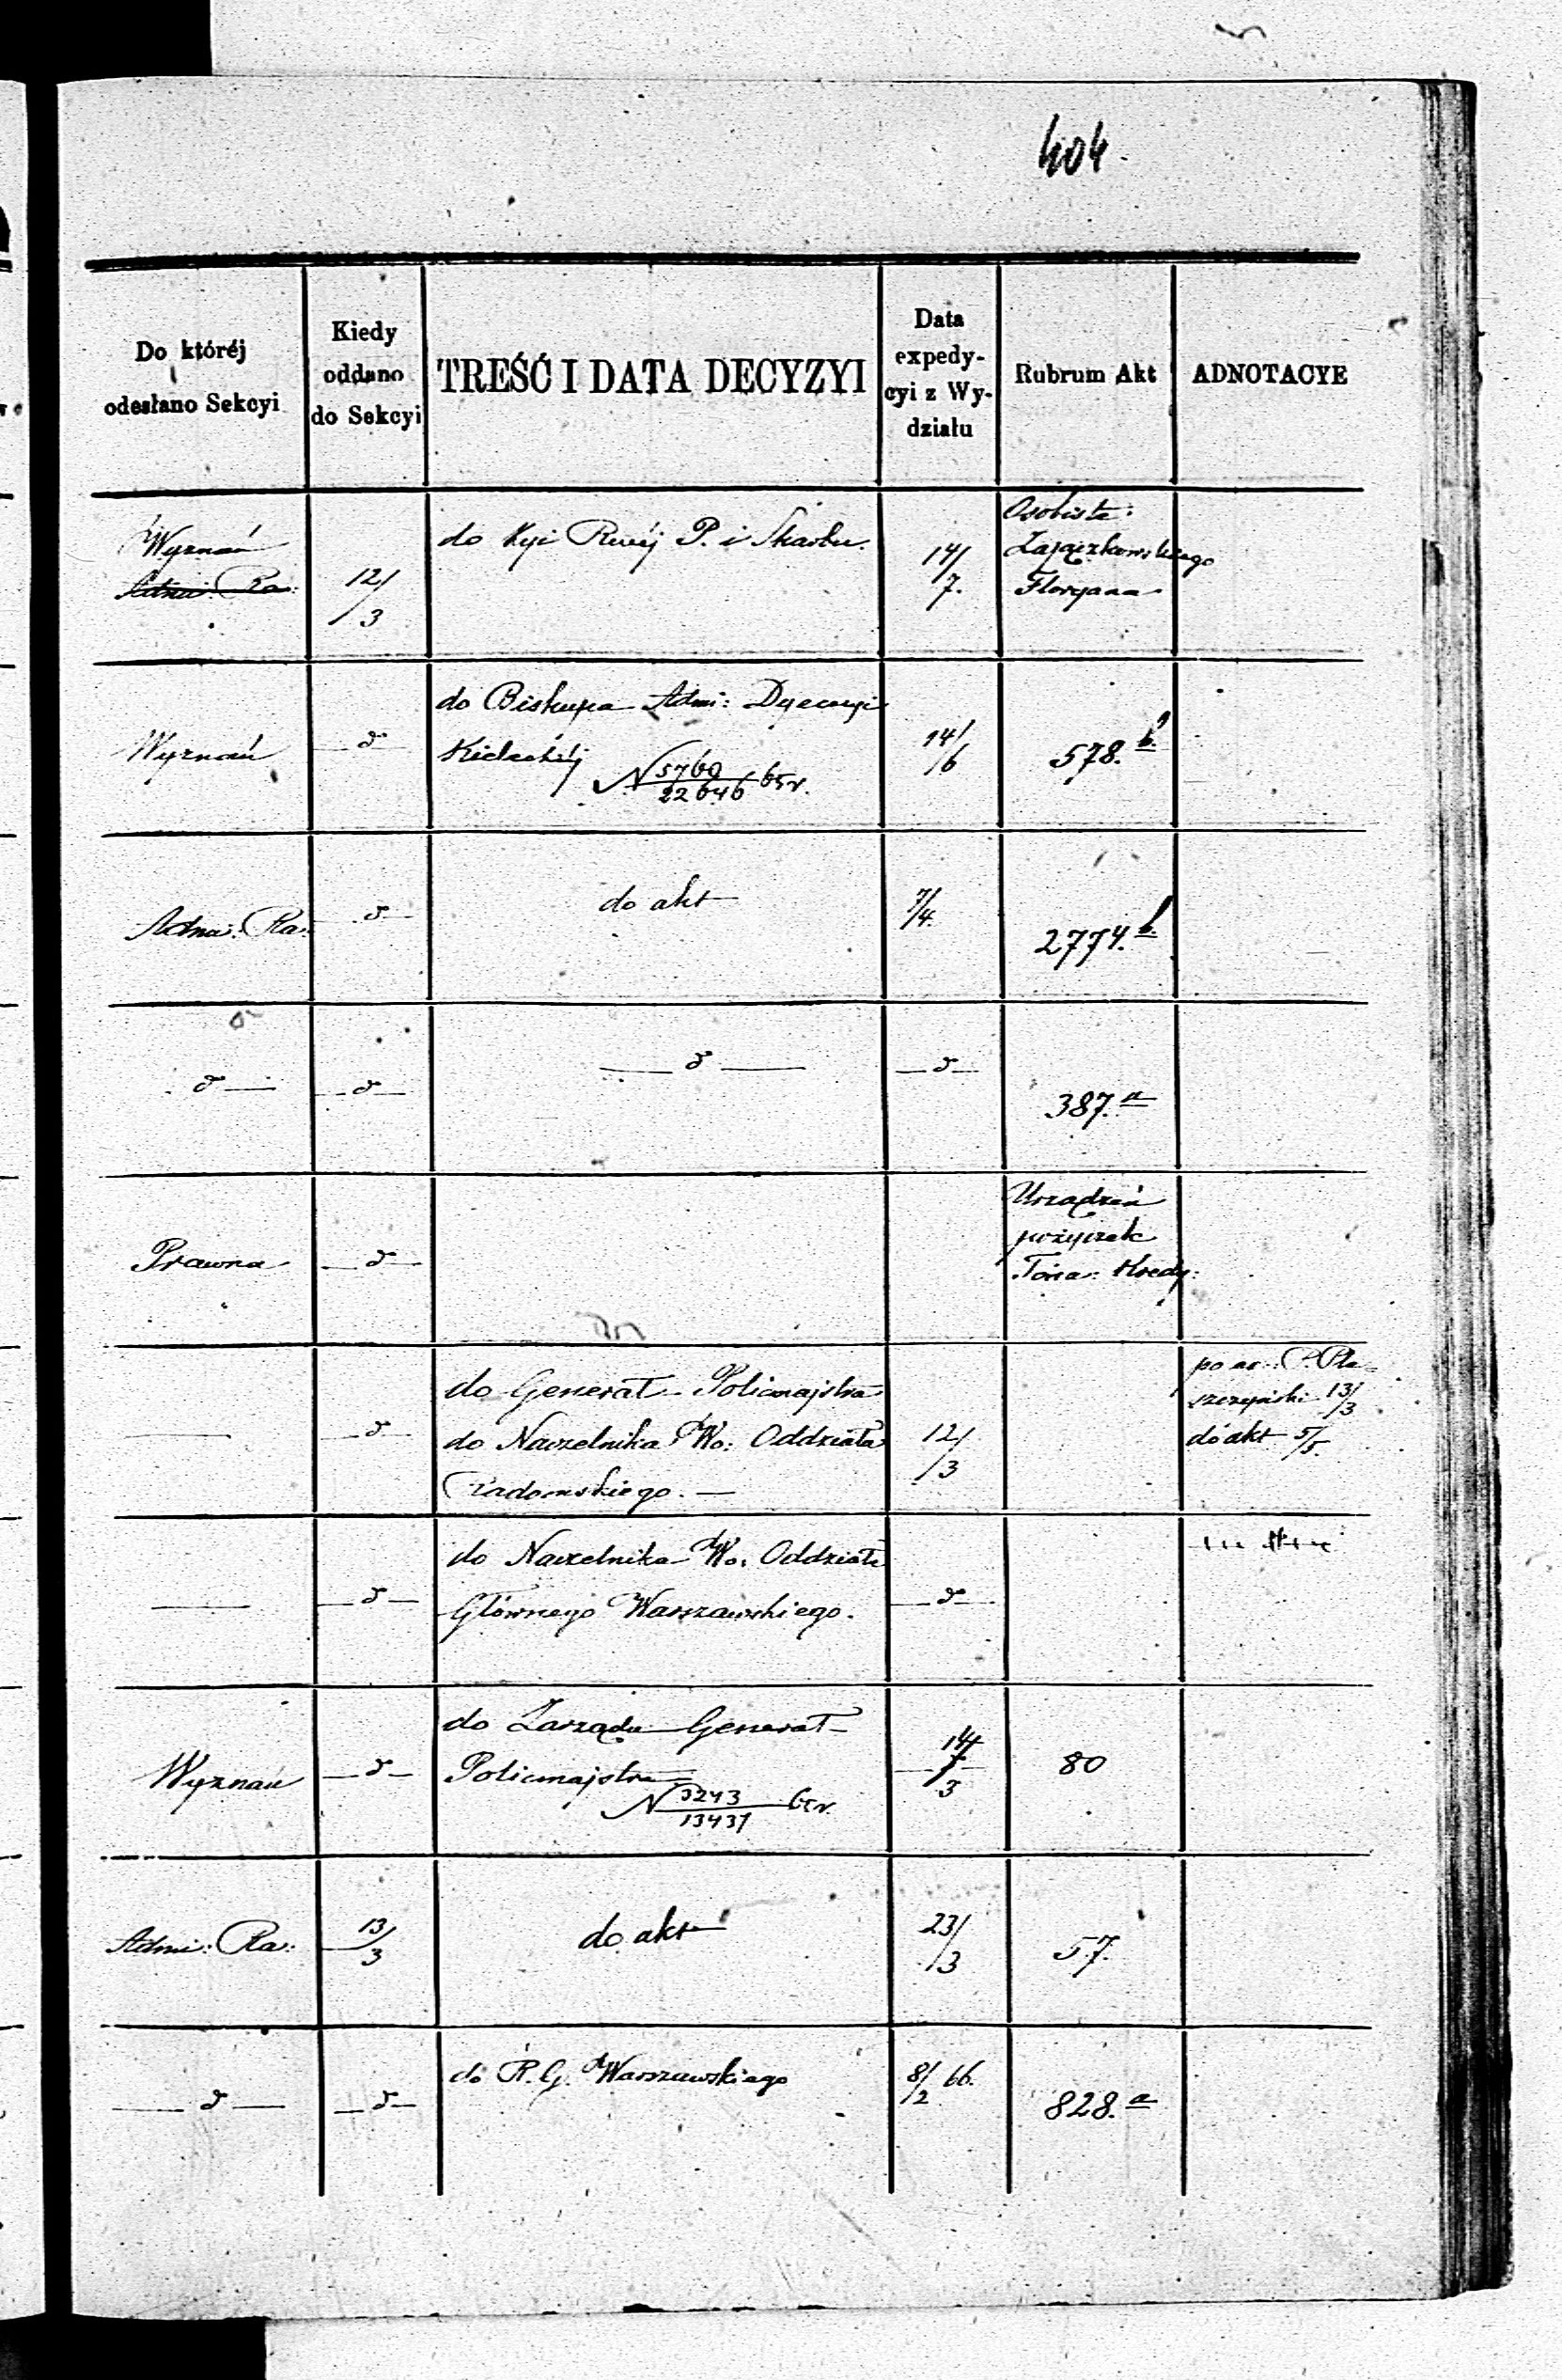 404.
Do któréj
odesłano Sekcyi
Kiedy
oddano
do Sekcyi
TREŚĆ I DATA DECYZYI
Data
expedy-
cyi z Wy-
działu
Rubrum Akt
ADNOTACYE
Wyznań
Admi: Ra:
12/3
do Kyi Rwéj P. i Skarbu.
14/7.
Osobiste:
Zajączkowskiego
Floryana
Wyznań
do Biskupa Admi: Dyecezyi
Kieleckiéj
N 5760/22646 65 r.
14/6
578. b.
Admi: Ra:
do akt
7/4.
2774. b.
387. a
Prawna
Urządzeń
pożyczek
Towa: Kredy:
do Generał-Policmajstra
do Naczelnika Wo: Oddziału
Radomskiego. —
12/3
13/3
do akt 5/5
do Naczelnika Wo: Oddziału
Głównego Warszawskiego.
Wyznań
do Zarządu Generał-
Policmajstra
N 3243/13431 65 r.
14/3
80
Admi: Ra:
13/3
do akt
23/3
57.
do R. G. Warszawskiego
8/2 66.
828. a